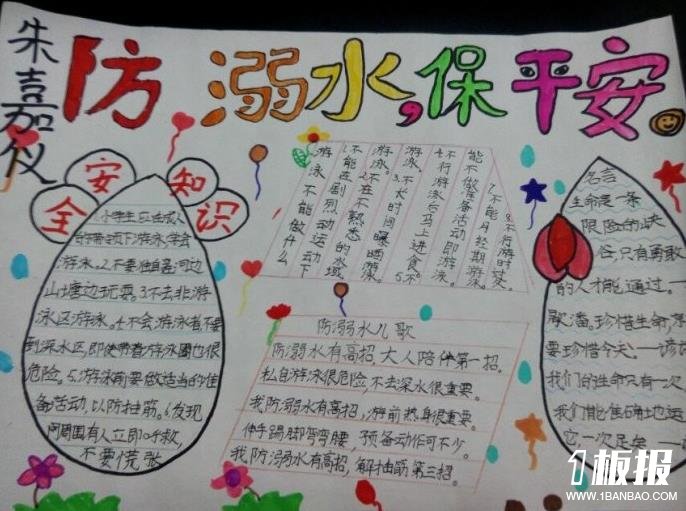 朱嘉仪
防溺水,保平安。
安全知识
1.小学生应在成人
带领下游泳,学会
游泳。2.不要独自在河边
山塘边玩耍。3.不去非游
泳区游泳。4.不会游泳者不要
到深水区,即使带着游泳圈也很
危险。5.游泳前要做适当的准
备活动,以防抽筋。6.发现
周围有人立即呼救,
不要慌张
游泳不能做什么
1.不能在剧烈运动下
游泳。2.不在不熟悉的水域
游泳。3.不长时间曝晒游泳。
4.不行游泳后马上进食。5.不
能不做准备活动即游泳。
7.不能月经期游泳。
8.不行游时
防溺水儿歌
防溺水有高招,大人陪伴第一招。
私自游泳很危险,不去深水很重要。
我防溺水有高招,游前热身很重要。
伸手踢脚弯弯腰,预备动作可不少。
我防溺水有高招,解抽筋第三招。
名言
生命是一条
限险的峡
谷,只有勇敢
的人才能通过。一
歇潘,珍惜生命,京
要珍惜今天。一谚语
我们的生命只有一次
我们能准确地运
它,一次足矣
1板报
WWW.1BANBAO.COM